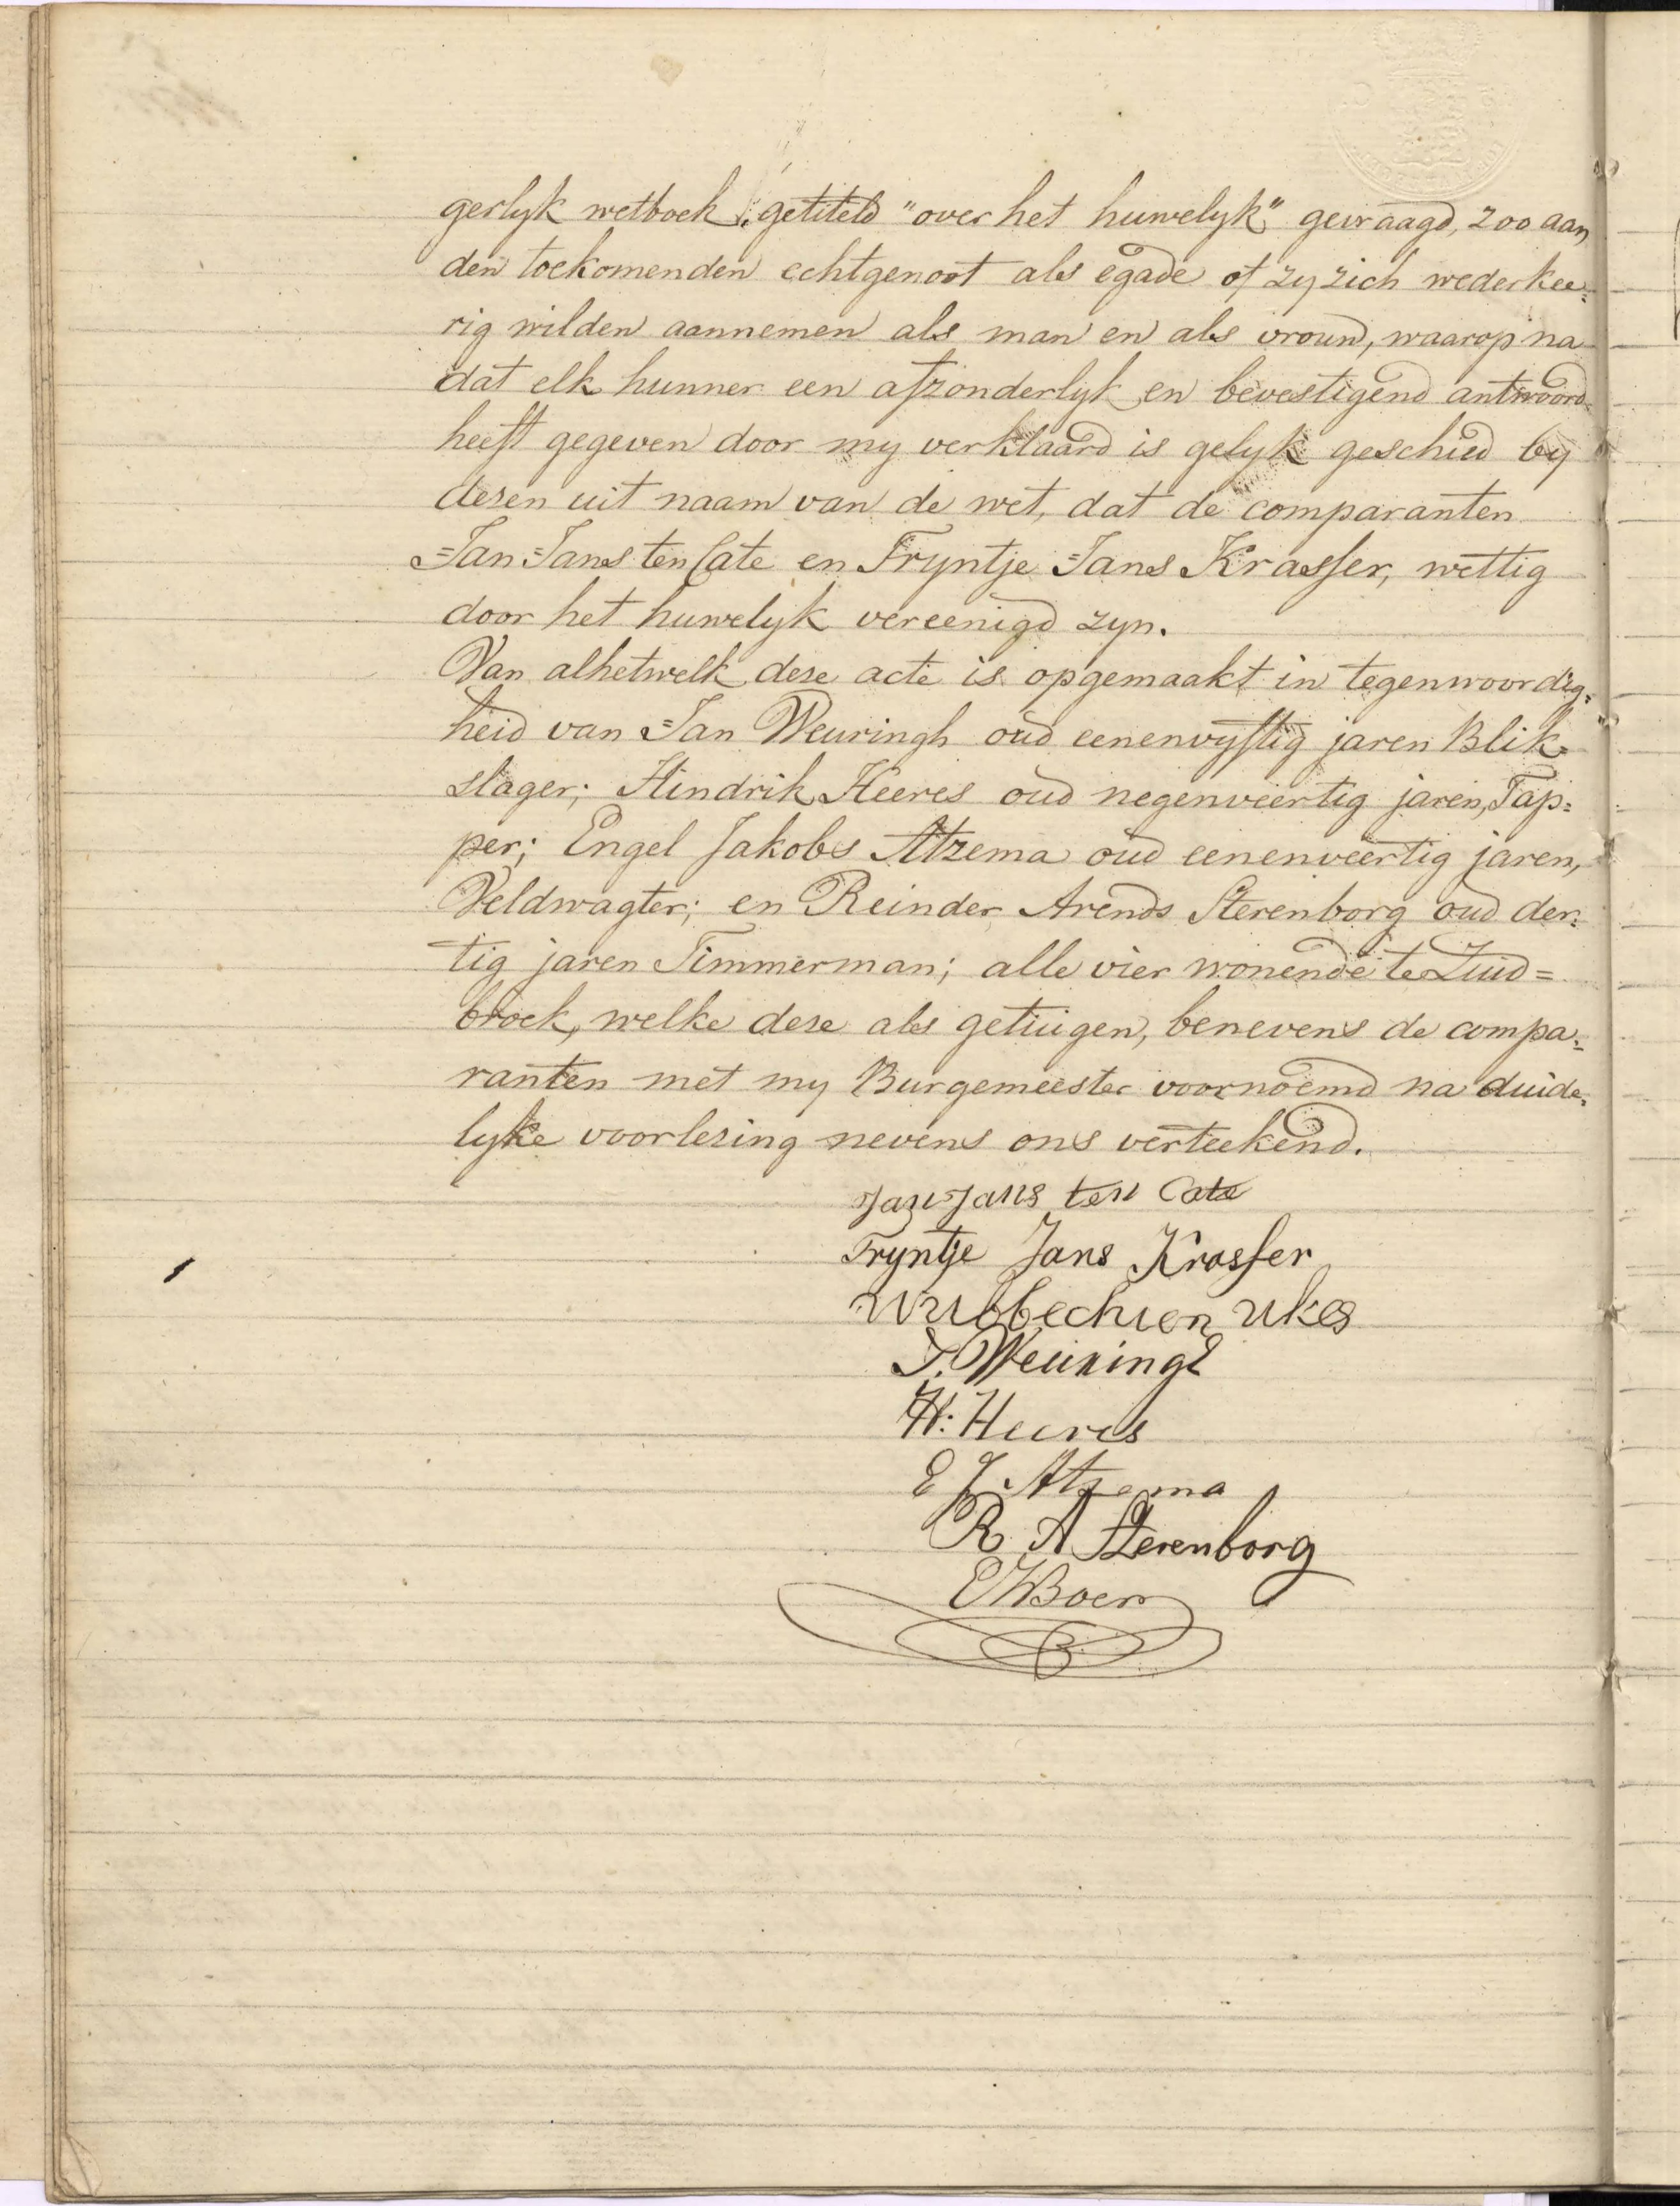 gerlyk wetboek, getiteld "over het huwelyk" gevraagd, zoo aan
den toekomenden echtgenoot als egade of zy zich wederkee=
rig wilden aannemen als man en als vrouw, waarop na
dat elk hunner een afzonderlyk en bevestigend antwoord
heeft gegeven door my verklaard is gelyk geschied by
desen uit naam van de wet, dat de comparanten
Jan Jans ten Cate en Tryntje Jans Krasser, wettig
door het huwelyk vereenigd zyn.
Van alhetwelk dese acte is opgemaakt in tegenwoordig=
heid van Jan Weuringh oud eenenvyftig jaren Blik=
slager; Hindrik Heeres oud negenveertig jaren, Tap=
per; Engel Jakobs Atzema oud eenenveertig jaren,
Veldwagter; en Reinder Arends Sterenborg oud der=
tig jaren Timmerman; alle vier wonende te Zuid=
broek, welke dese als getuigen, benevens de compa=
ranten met my Burgemeester voornoemd na duide=
lyke voorlesing nevens ons verteekend.
Jan Jans ten Cate
Tryntje Jans Krasser
Wubbechien Ukes
J. Weuringh
H: Heeres
E J. Atzema
R A Sterenborg
EHBoer